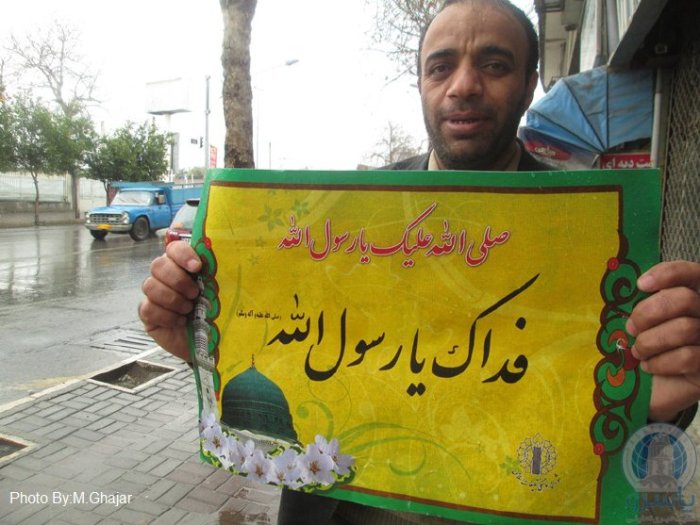 صلی الله علیک یا رسول الله
(صلی الله علیه و آله وسلم)
فداک یا رسول الله
Photo By:M.Ghajar